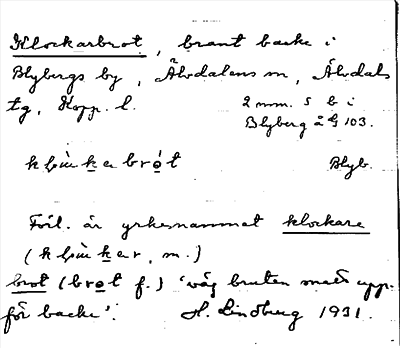 Klockarbrot, brant backe i
Blybergs by, Älvdalens sn, Älvdals
tg, Kopp. l. 2 mm. S b i
Blyberg å G 103.
Blyb.
Förl. är yrkesnamnet klockare
m.)
brot (brot f.) 'väg bruten snett upp-
för backe'. H. Lindberg 1931.